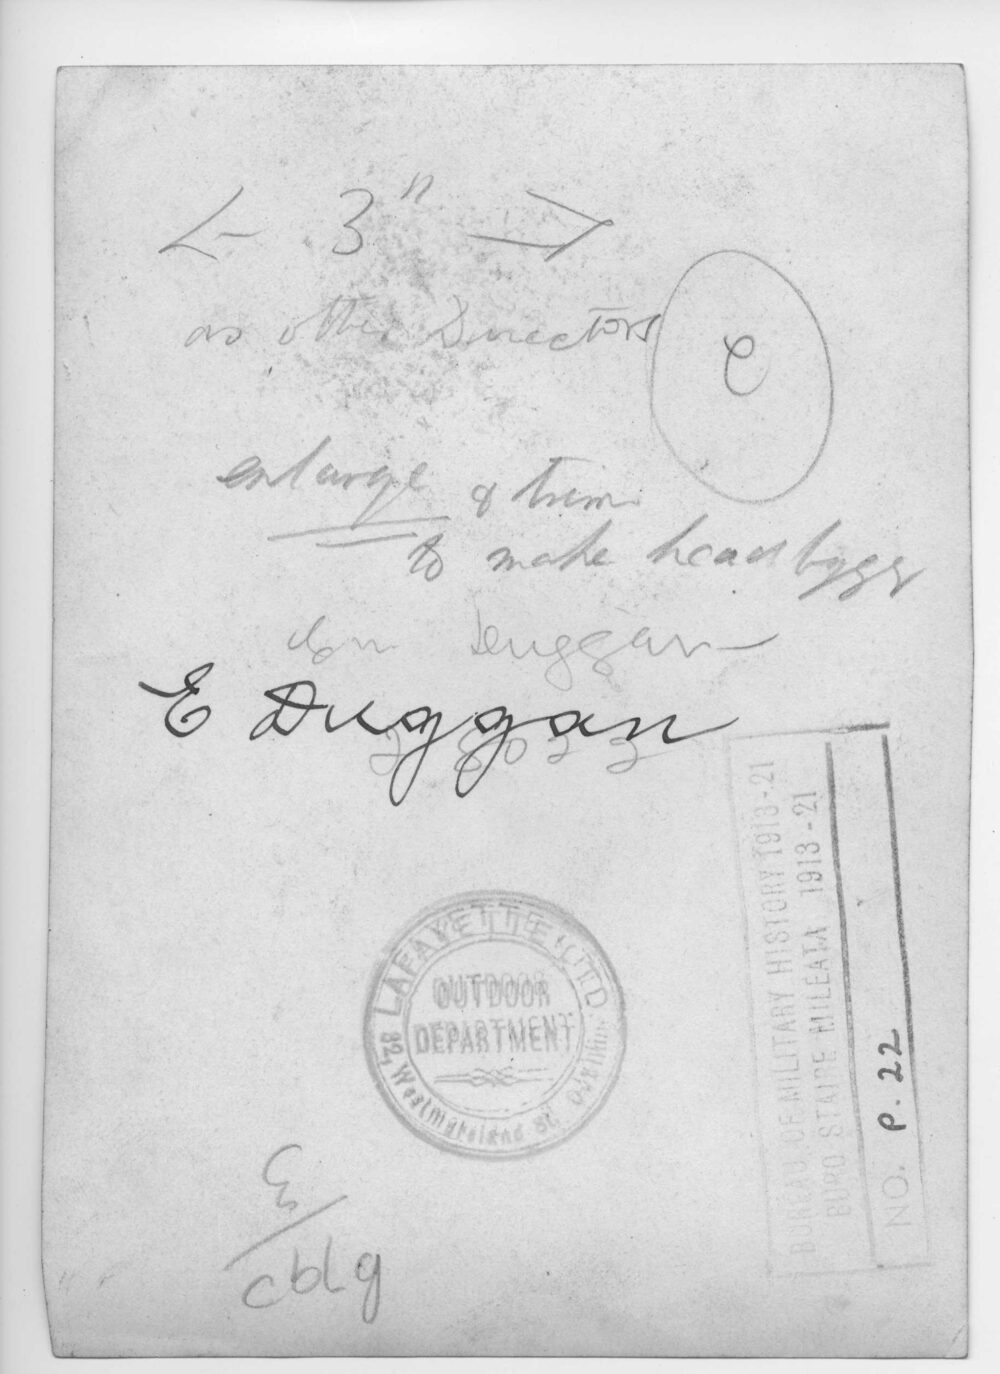 ← 3" →
as other Directors
e
enlarge & trim
to make head bigger
Duggan
E Duggan
LAFAYETTE LTD
OUTDOOR
DEPARTMENT
Westmoreland St. Dublin
BUREAU OF MILITARY HISTORY 1913-21
BURO STAIRE MILEATA 1913-21
NO. P. 22
3